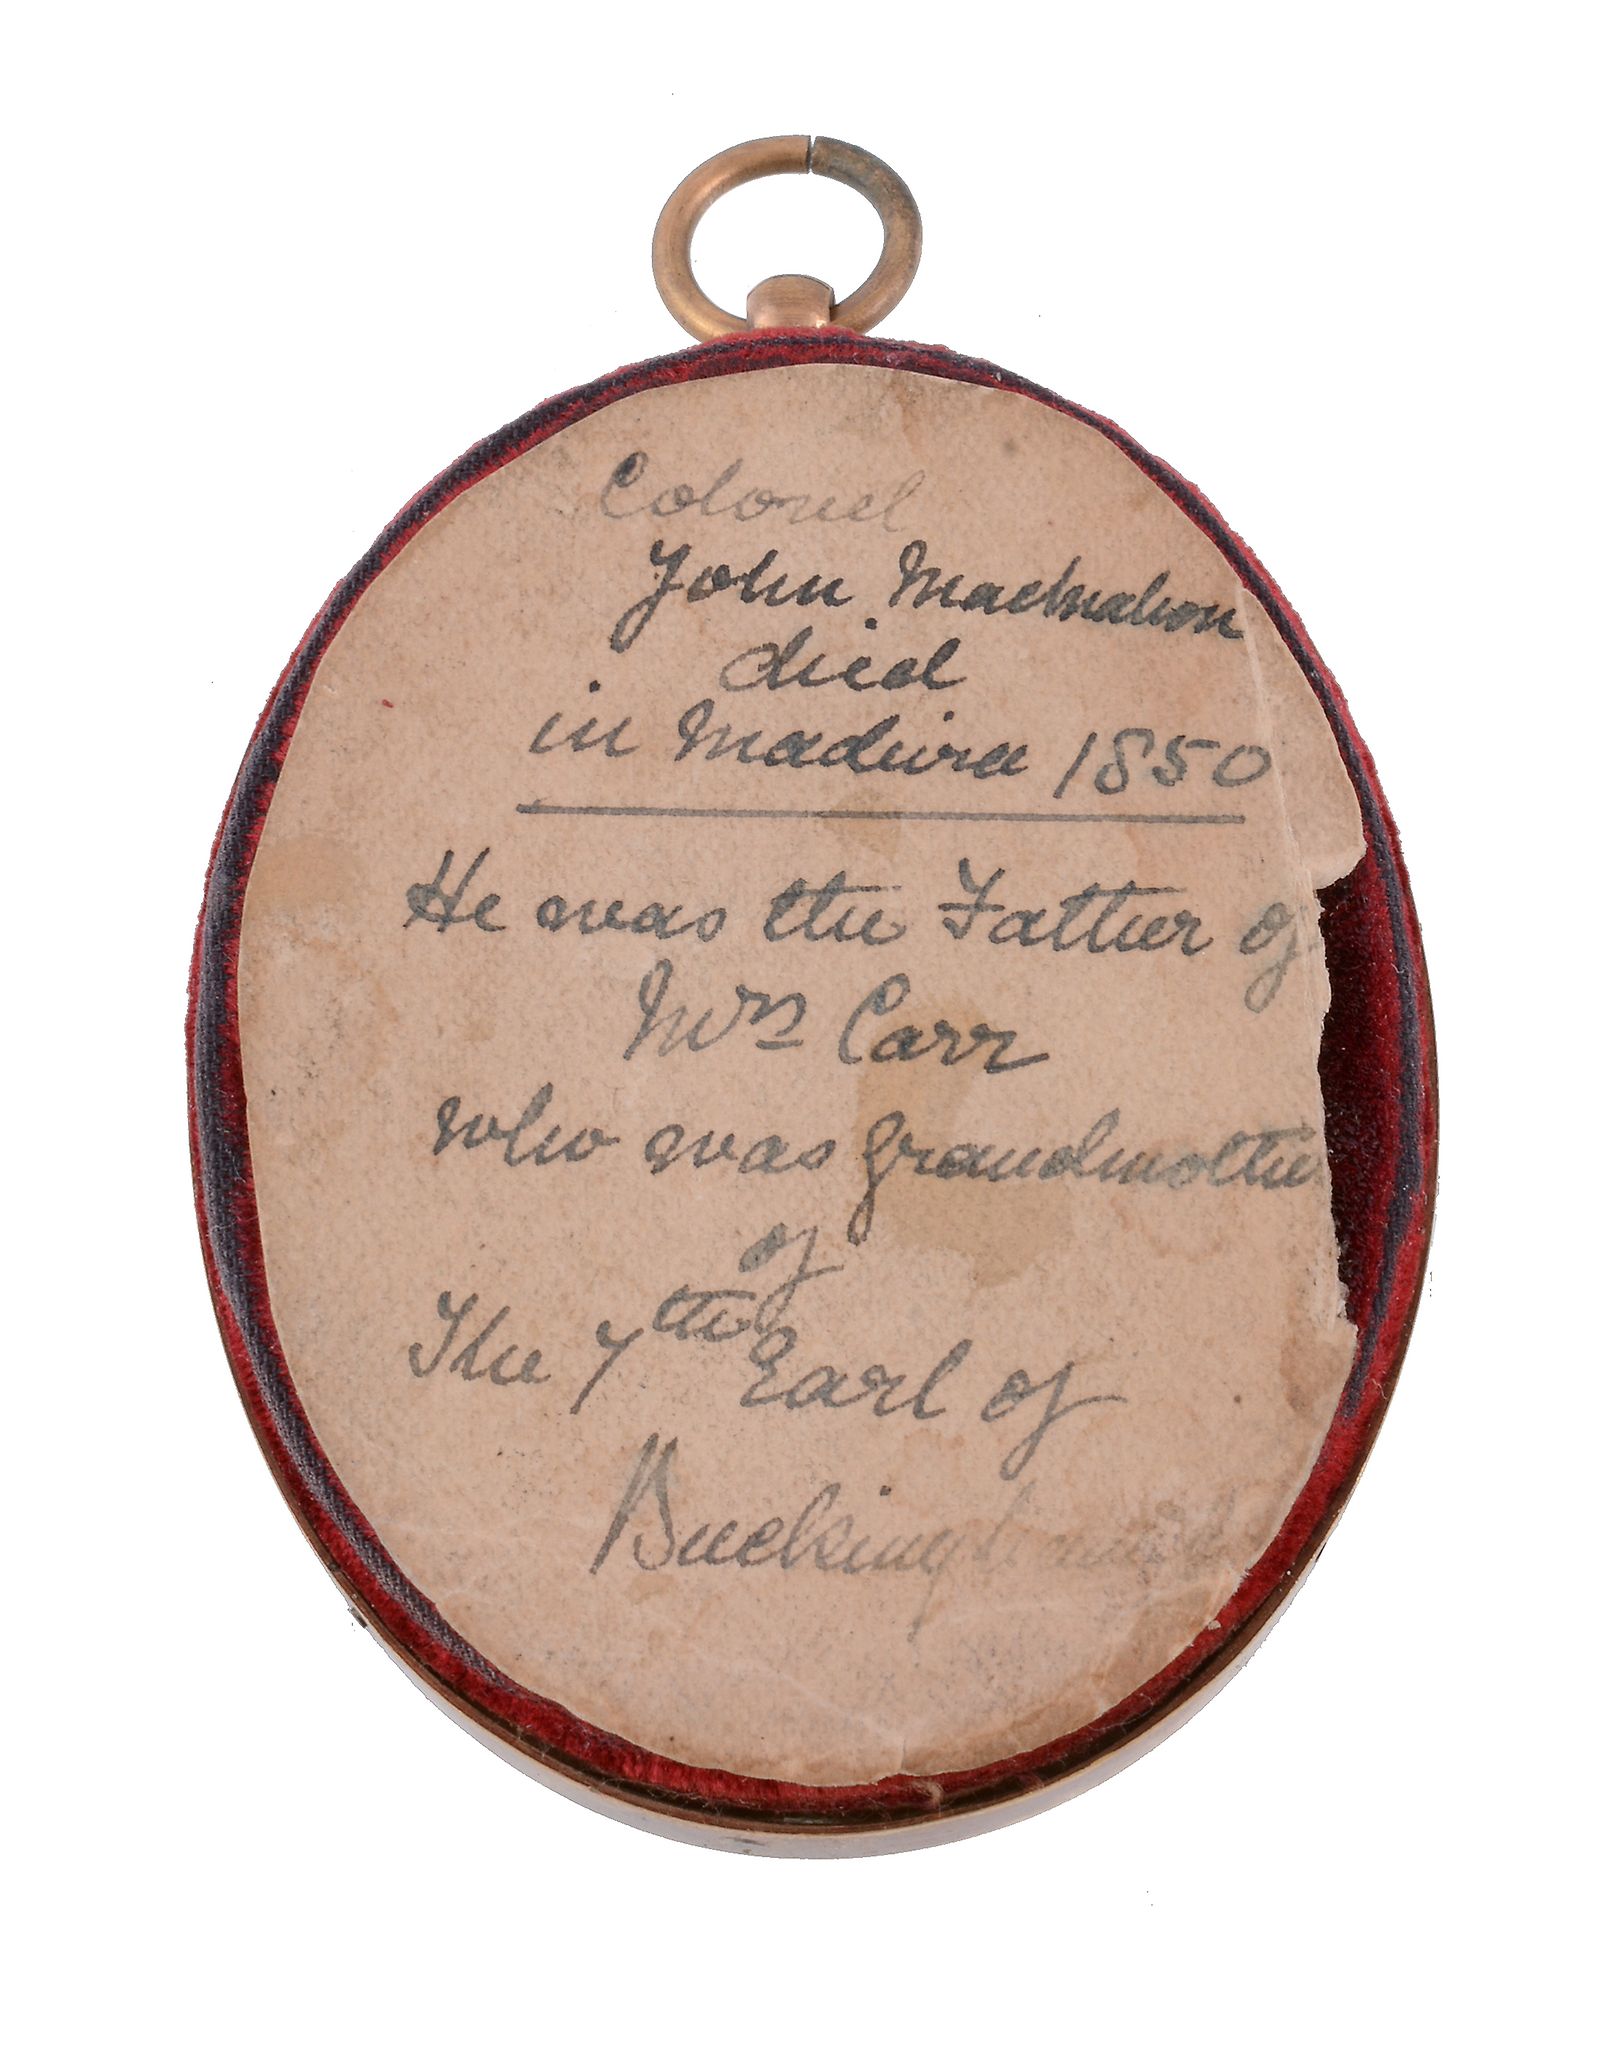 Colonel
John Macmahon
died
in Madeira 1850
He was the Father of
Mrs Carr
who was grandmother
of
The 7th Earl of